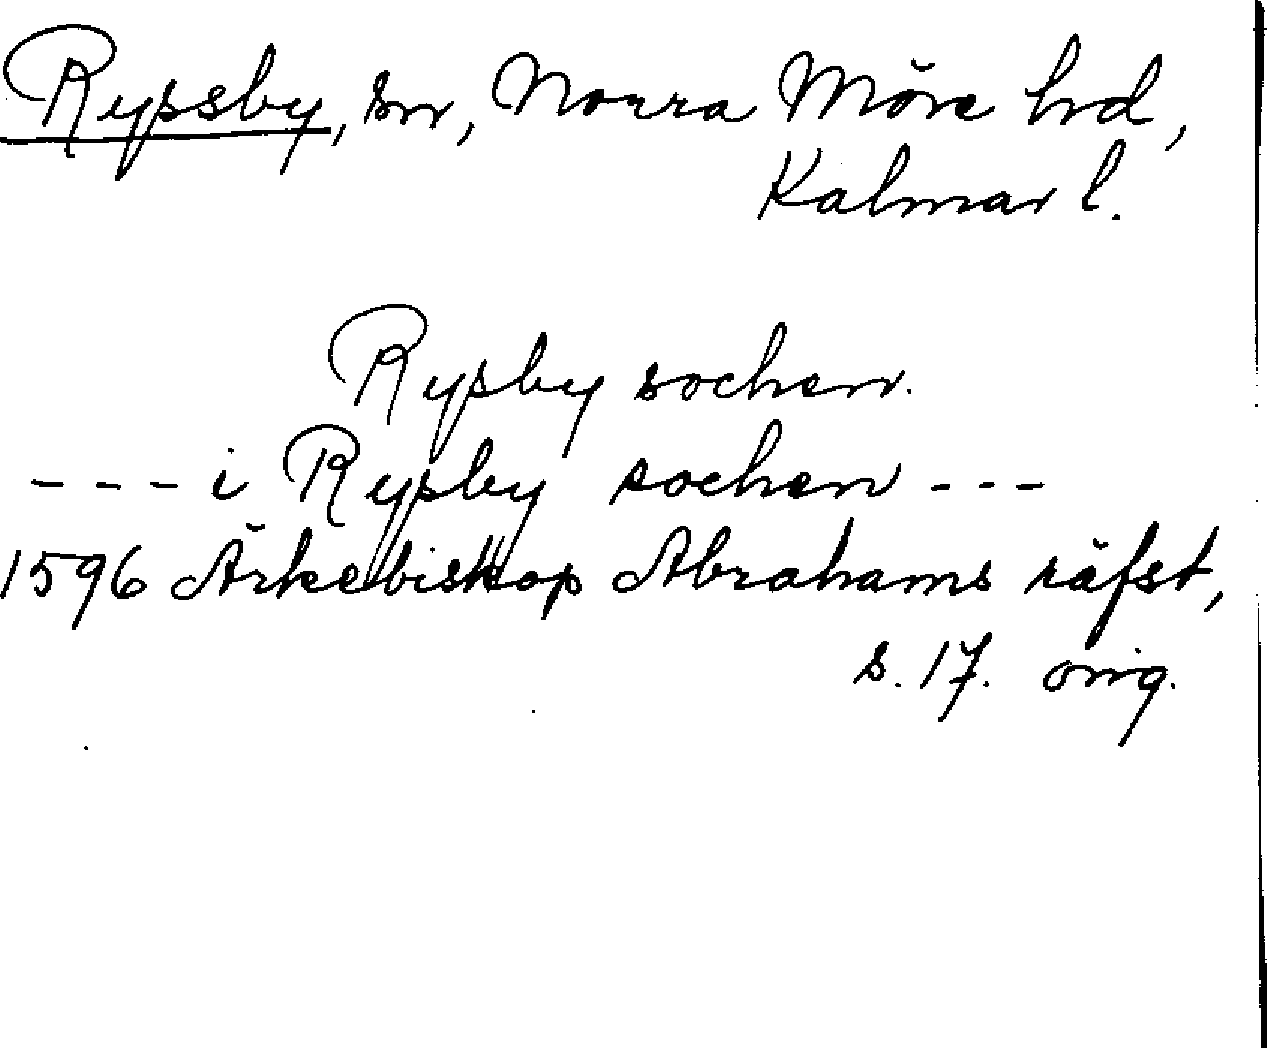 Ryssby, sn, Norra Möre hd,
Kalmar l.
Rysby sochen.
- - - i Rysby sochen - - -
1596 Ärkebiskop Abrahams räfst,
s. 17. orig.